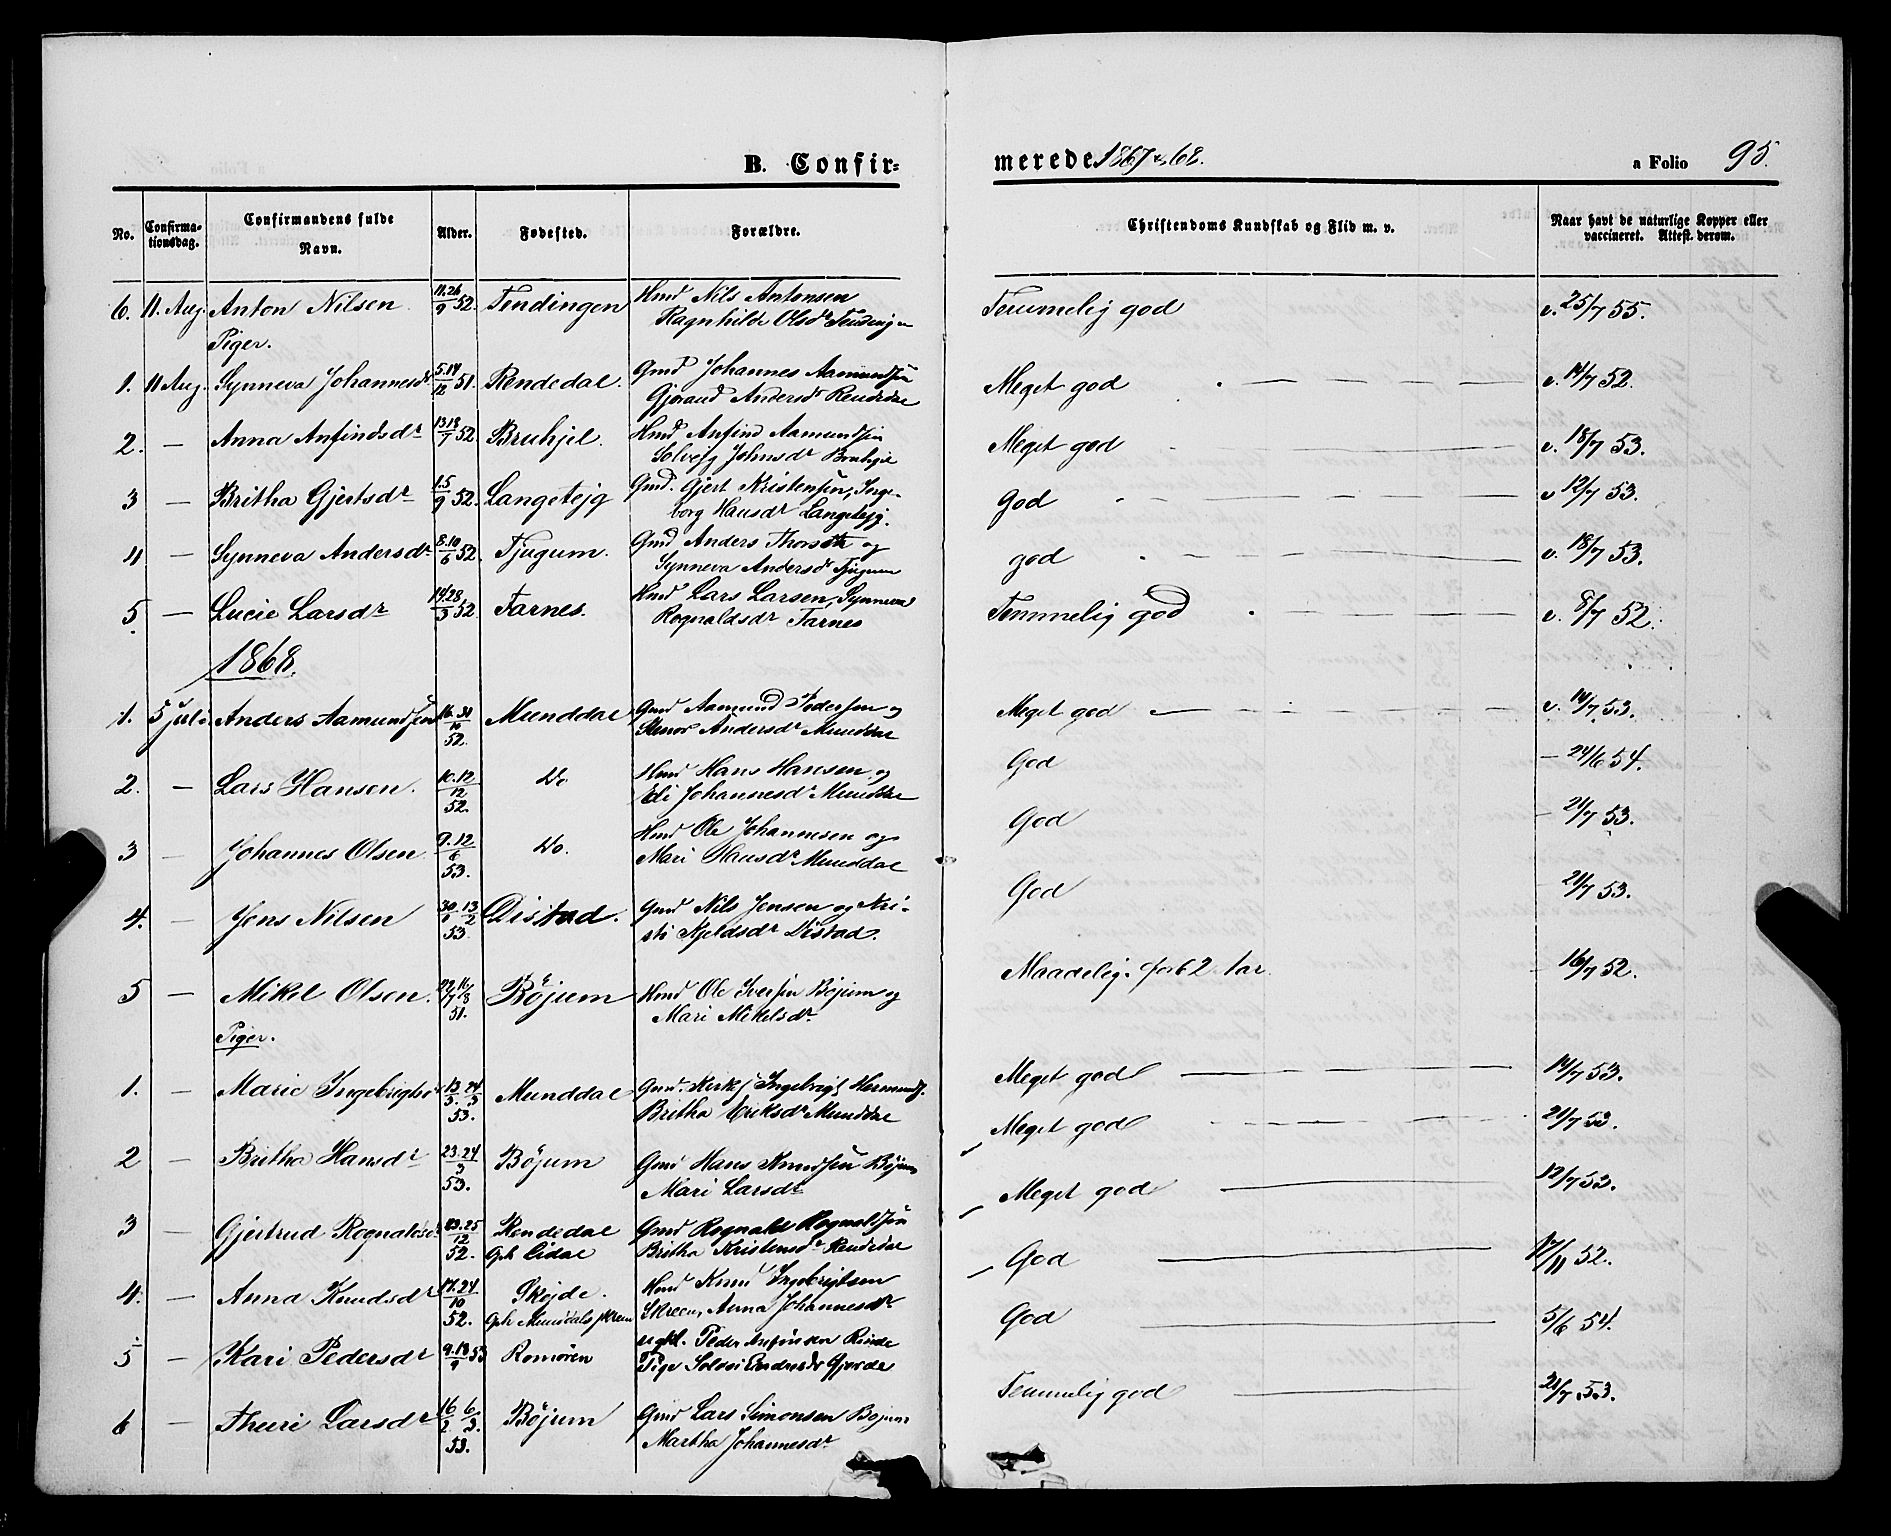 B. Confir-
merede 1867 & 68.
a Folio 95.
No.
Confirma-
tionsdag.
Confirmandens fulde
Navn.
Alder.
Fødested.
Forældre.
Christendoms Kundskab og Flid m. v.
Naar havt de naturlige Kopper eller
vaccineret. Attest. derom.
6. 11 Aug. Anton Nilsen 11.26/9 52. Fendingen Hmd Nils Antonsen
Ragnhilde Olsdr
Temmelig god v. 25/7 55.
Piger.
1. 11 Aug. Synneva Johannesdr 5.14/12 51. Rendedal. Gmd Johannes Aamundsen
Gjøraud Andersdr Rendedal
Meget god v. 14/7 52.
2. — Anna Anfindsdr 13.18/7 52. Bruhjel. Hmd Anfind Aamundsen
Solvejg Johnsdr Bruhjel
Meget god v. 18/7 53.
3 — Britha Gjertsdr 1.5/9 52. Langetejg Gmd. Gjert Kristensen, Inge-
borg Hansdr Langetejg.
God v 12/7 53.
4 — Synneva Andersdr 8.10/6 52. Tjugum. Gmd Anders og
Synneva Andersdr Tjugum
god v. 18/7 53.
5. — Lucie Larsdr 14.28/3 52. Farnes. Hmd Lars Larsen, Synneva
Rognaldsdr Farnes
Temmelig god v. 8/7 52.
1868.
1. 5 Juli Anders Aamundsen 16.31/10 52. Munddal Gmd Aamund Pedersen og
Andersdr Munddal
Meget god v. 14/7 53.
2. — Lars Hansen. 10.12/12 52. Do Hmd Hans Hansen og
Eli Johannesdr Munddal
God - 24/6 54.
3 — Johannes Olsen 9.12/6 53. Do. Hmd Ole Johannesen og
Mari Hansdr Munddal
God - 21/7 53.
4. — Jens Nilsen 30/1 13/2 53. Distad. Gmd Nils Jensen og Kri-
sti Kjeldsdr Distad.
God - 21/7 53.
5 — Mikel Olsen. 51. Böjum Hmd Ole Iversen Bøjum og
Mari Mikelsdr
Maadelig. - 16/7 52.
Piger.
1. — Marie Ingebrigtsdr 13/3. 24/3 53. Munddal Gmd. Ingebrigt Hermunds.
Britha Eriksdr Munddal
Meget god 14/7 53.
2 — Britha Hansdr 23.24/3 53. Böjum Gmd Hans Knudsen Bøjum
Mari Larsdr
Meget god 21/7 53.
3 — Gjertrud Rognaldsdr 25/12 52. Rendedal Gmd Rognald Rognaldsen
Oph Eidal Britha Kristensdr Rendedal
Meget god 12/7 53.
4. — Anna Knudsdr 17.24/10 52. Skejde. Hmd Knud Ingebrigtsen
Oph Munddals skreen Skreen, Anna Johannesdr
God 17/11 52.
5 — Kari Pedersdr 9.18/9 53 Romören ugkl. Peder Anfinsen Rinde
Pige
God 5/6 54.
6 — Thuri Larsdr 16/2 6/3. 53. Böjum Gmd Lars Simonsen Bøjum
Martha Johannesdr
Temmelig god 21/7 53.